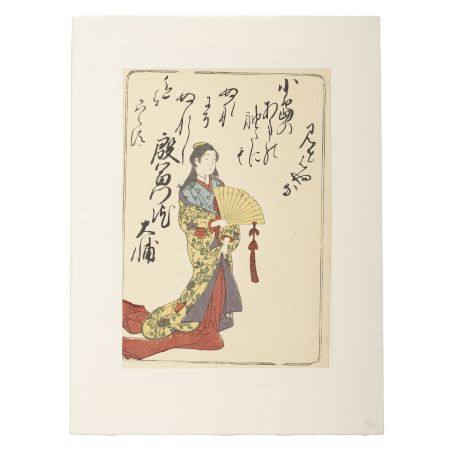 見せはやな
小島の
あまの
袖たにも
ぬれ
にそ
ぬれし
色は
殷富門院
大輔